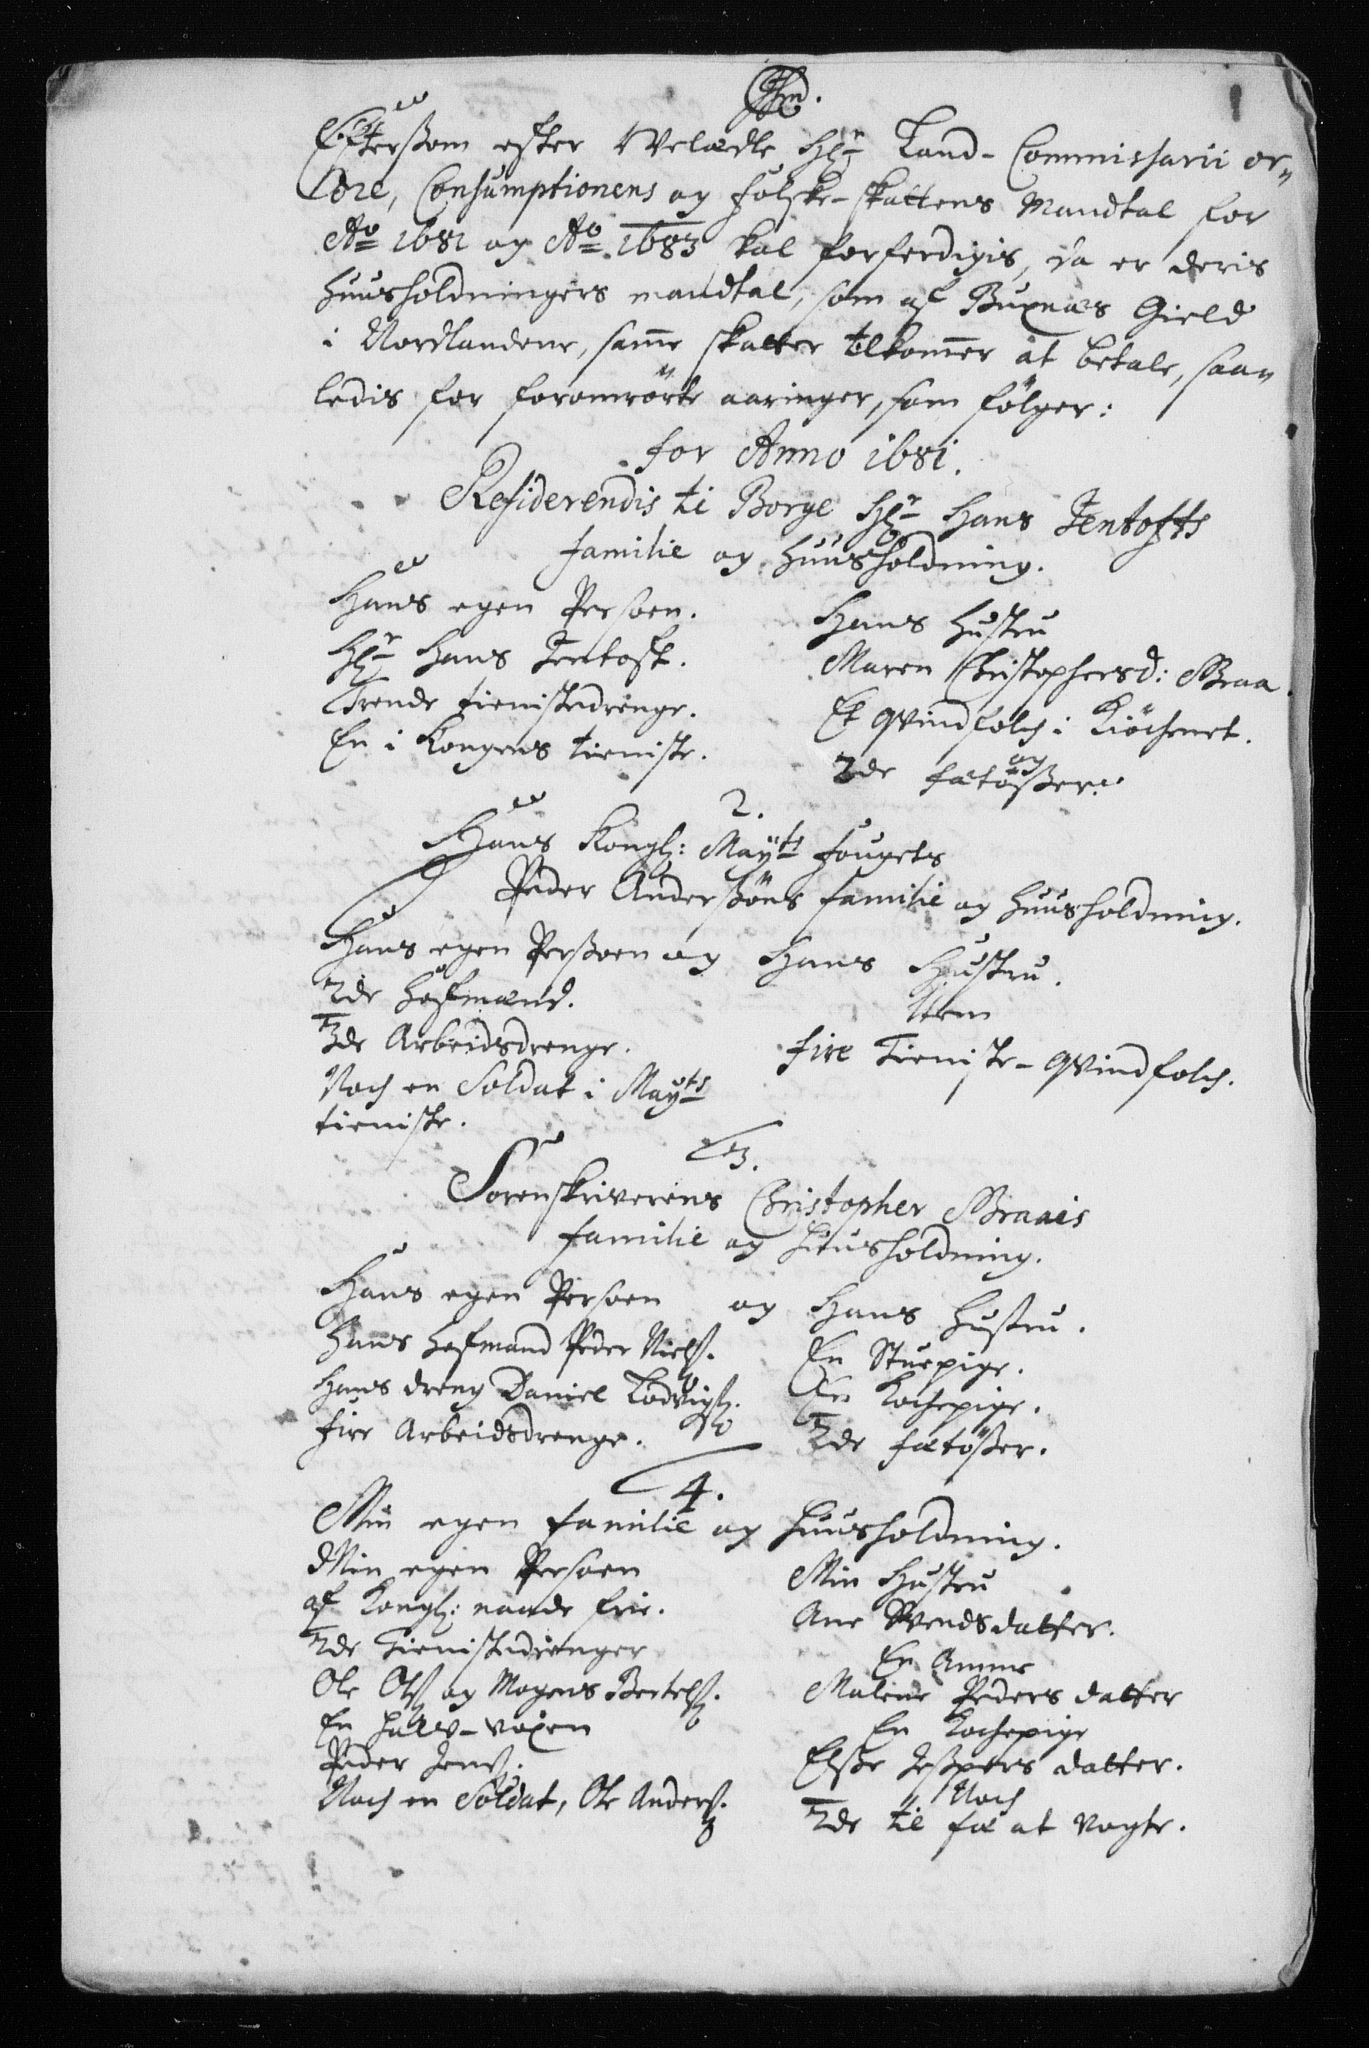 Efterßom efter Welædle Hr Land-Commissarii or„
dre, Consumptionens og folske-skattens Mandtal for
Ao 1681 og Ao 1683 skal forferdigis, da er deris
huusholdningers mandtal, som af Buxnæs Gield
i Nordlandene, same skatter tilkommer at betale, saa„
ledis for foromrörte aaringer, som fölger:
for Anno 1681.
Residerendis ti Borge Hr Hans Jentofts
familie og huusholdning.
Hans egen Persoen.
Hr Hans Jentoft.
Trende tienistedrenge.
En i Kongens tieniste.
Hans Hustru
Maren Christophersd: Braa.
Et qvindfolch i Kiöchenet.
og
2de fætößer.
2.
Hans Kongl: Mayts fougets
Peder Anderßöns familie og huusholdning.
Hans egen Perßoen og Hans Hustru.
2de hofmænd.
3de Arbeidsdrenge.
Noch en Soldat i Mayts
tieniste.
Item
fire Tieniste-qvindfolch.
3.
Sorenskriverens Christopher Braaes
familie og huusholdning.
Hans egen Persoen og Hans Hustru.
Hans hofmand Peder Nielß.
Hans dreng Daniel Lodvigß.
fire Arbeidsdrenge.
En Stuepige.
En Kochepige.
2de fætößer.
4.
Min egen familie og huusholdning.
Min egen Persoen
af Kongl: naade frie.
2de Tienistedrenger
Ole Olß og Mogens Bertelß.
En halv-voxen
Peder Jenß.
Noch en Soldat, Ole Anderß.
Min Hustru
Ane Svendsdatter.
En Amme
Malene Peders datter
En Kochepige
Elße Jeßpers datter.
Noch
2de til fæ at vogte.